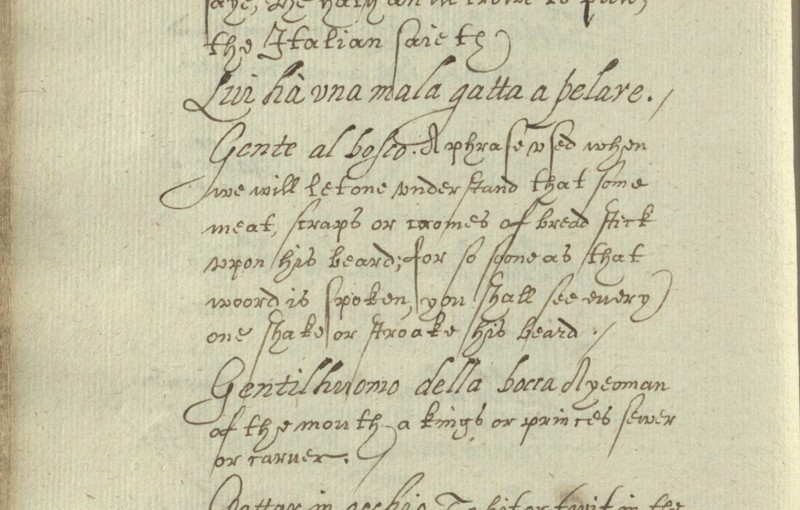 saye, he hath an
the Italian saieth
Lui hà vna mala gatta a pelare.
Gente al bosco. A phrase vsed when
we will let one vnderstand that some
meat, scraps or cromes of bread stick
vpon his beard; for so soone as that
woord is spoken, you shall see euery
one shake or stroake his beard.
Gentilhuomo della bocca A yeoman
of the mouth a kings or princes sewer
or caruer.
in occhio To hit or twit in the